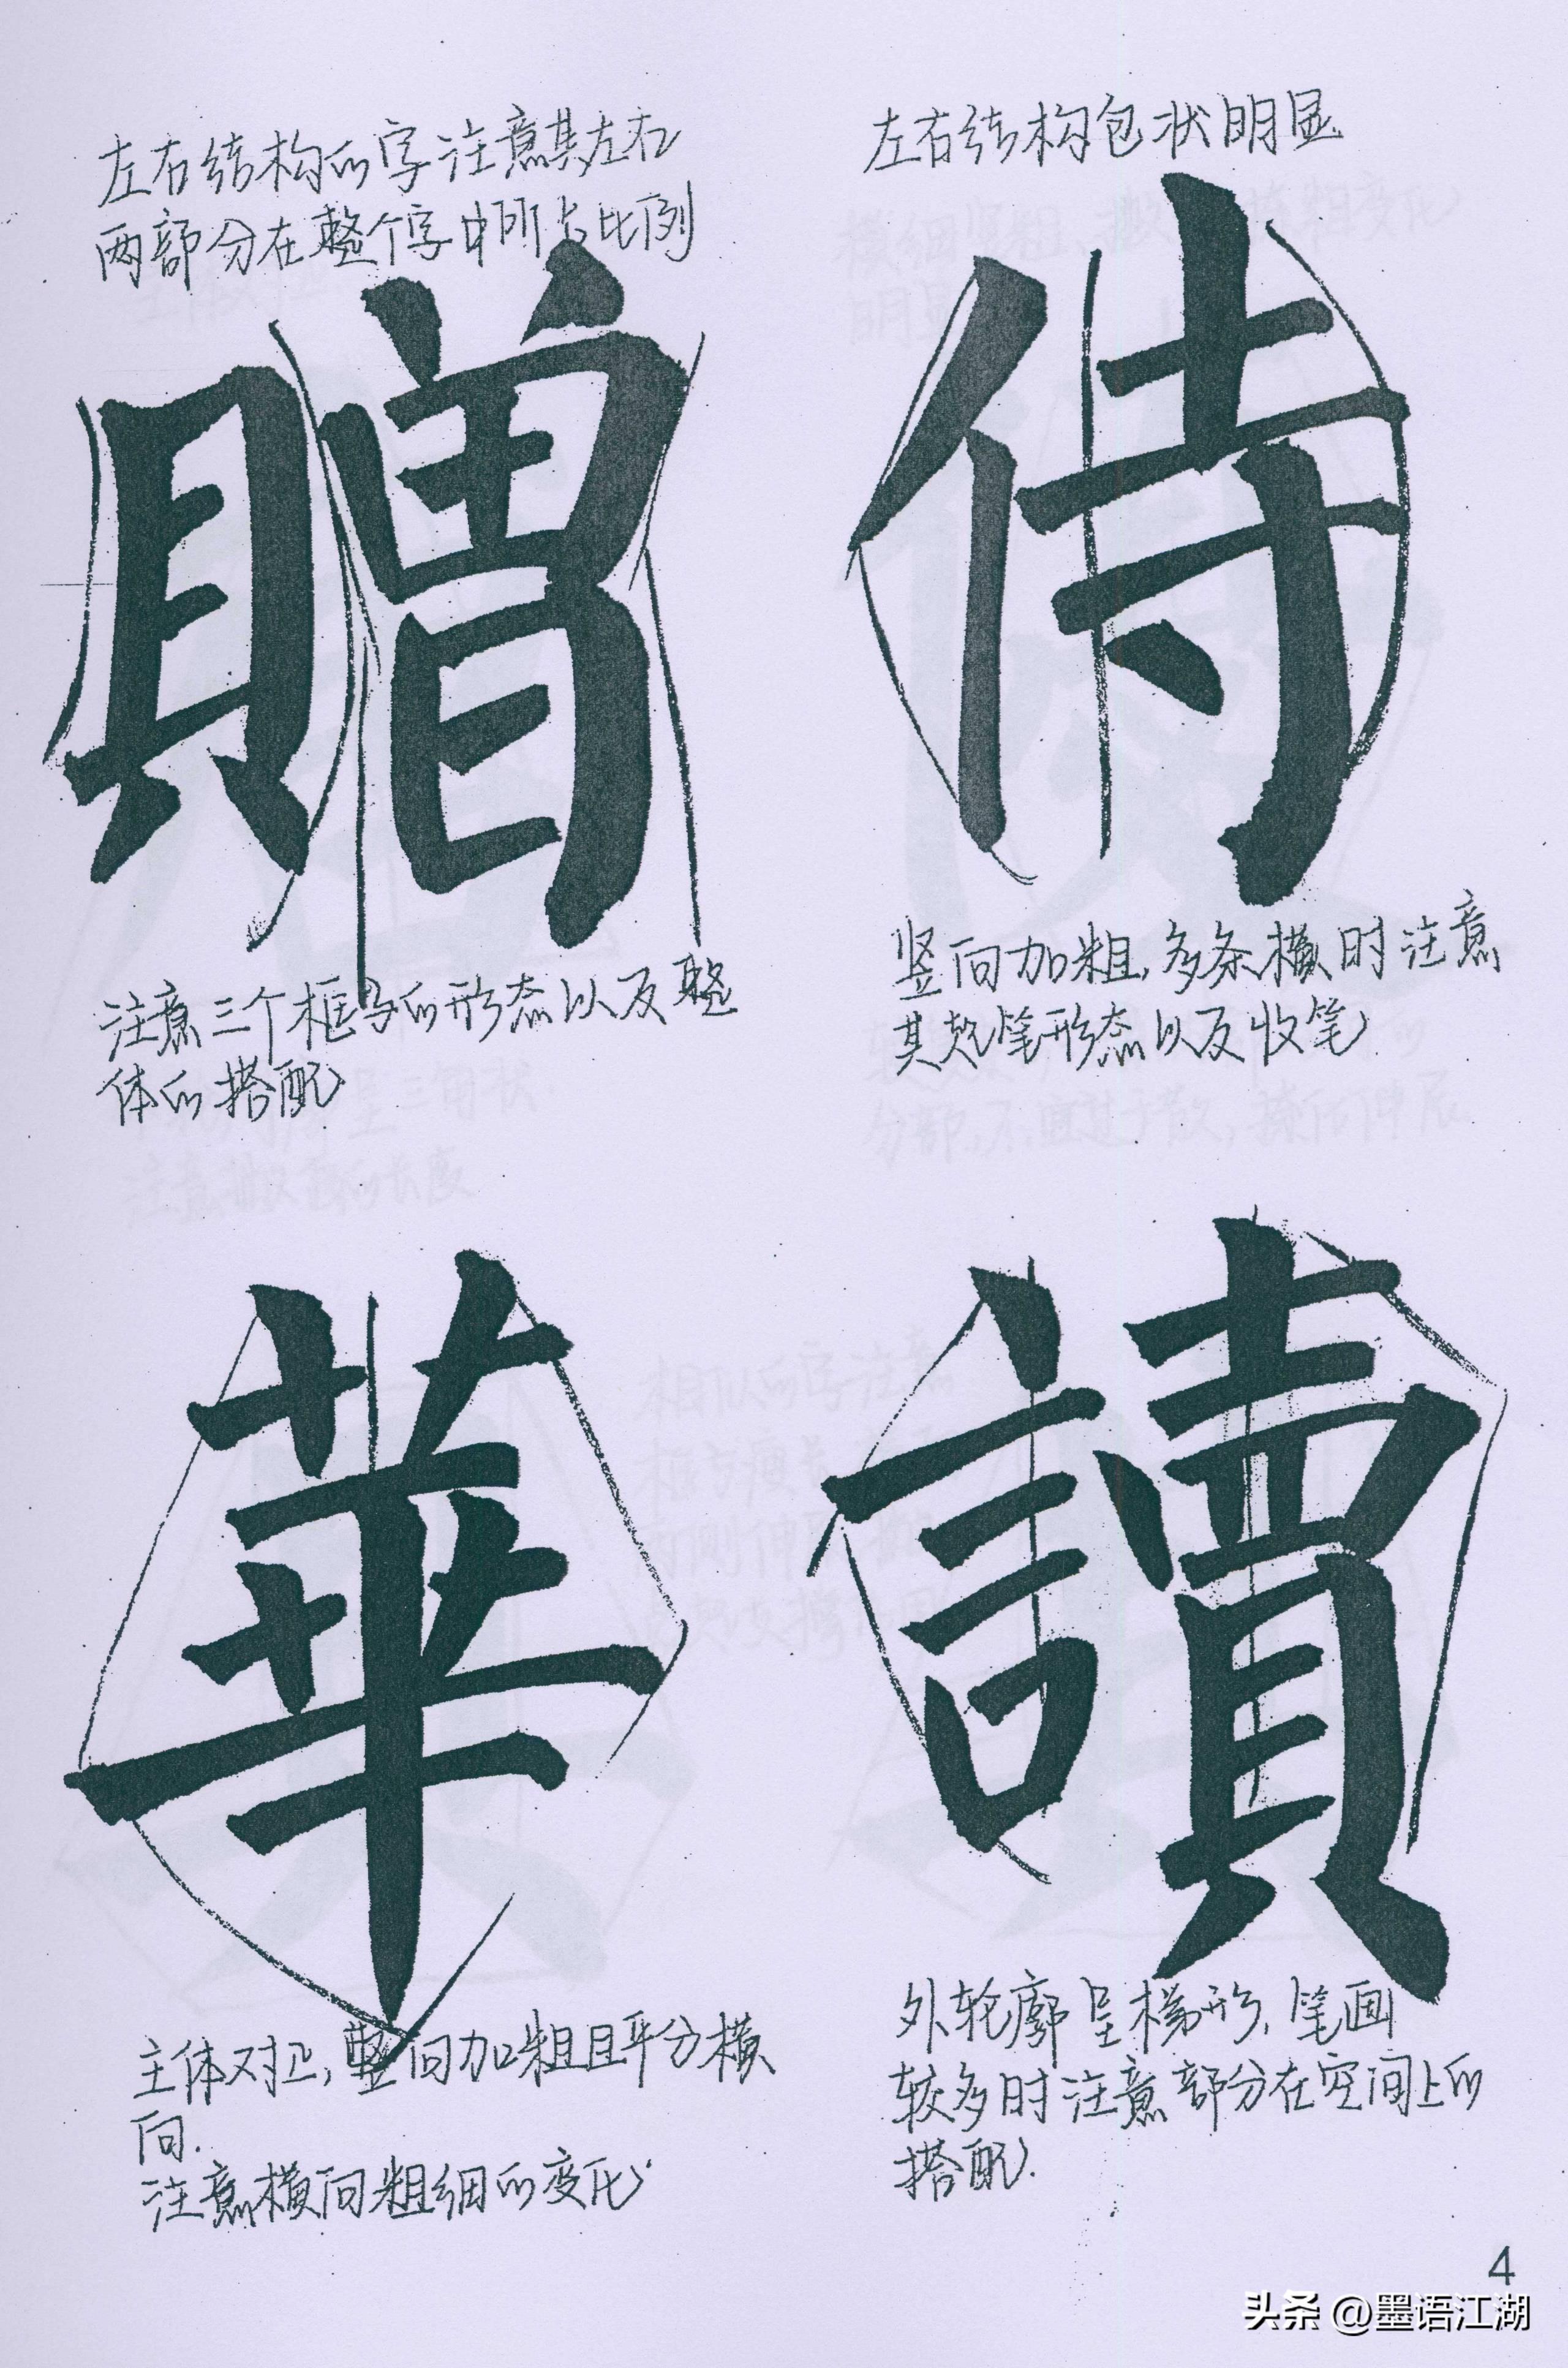 左右结构的字注意其左右
两部分在整个字中所占比例
贈
注意三个框与的形态以及整
体的搭配
左右结构包状明显
侍
竖向加粗,多条横时注意
其起笔形态以及收笔
華
主体对正,竖向加粗且平分横
向.
注意横向粗细的变化
讀
外轮廓呈梯形,笔画
较多时注意部分在空间上的
搭配.
4
头条 @墨语江湖